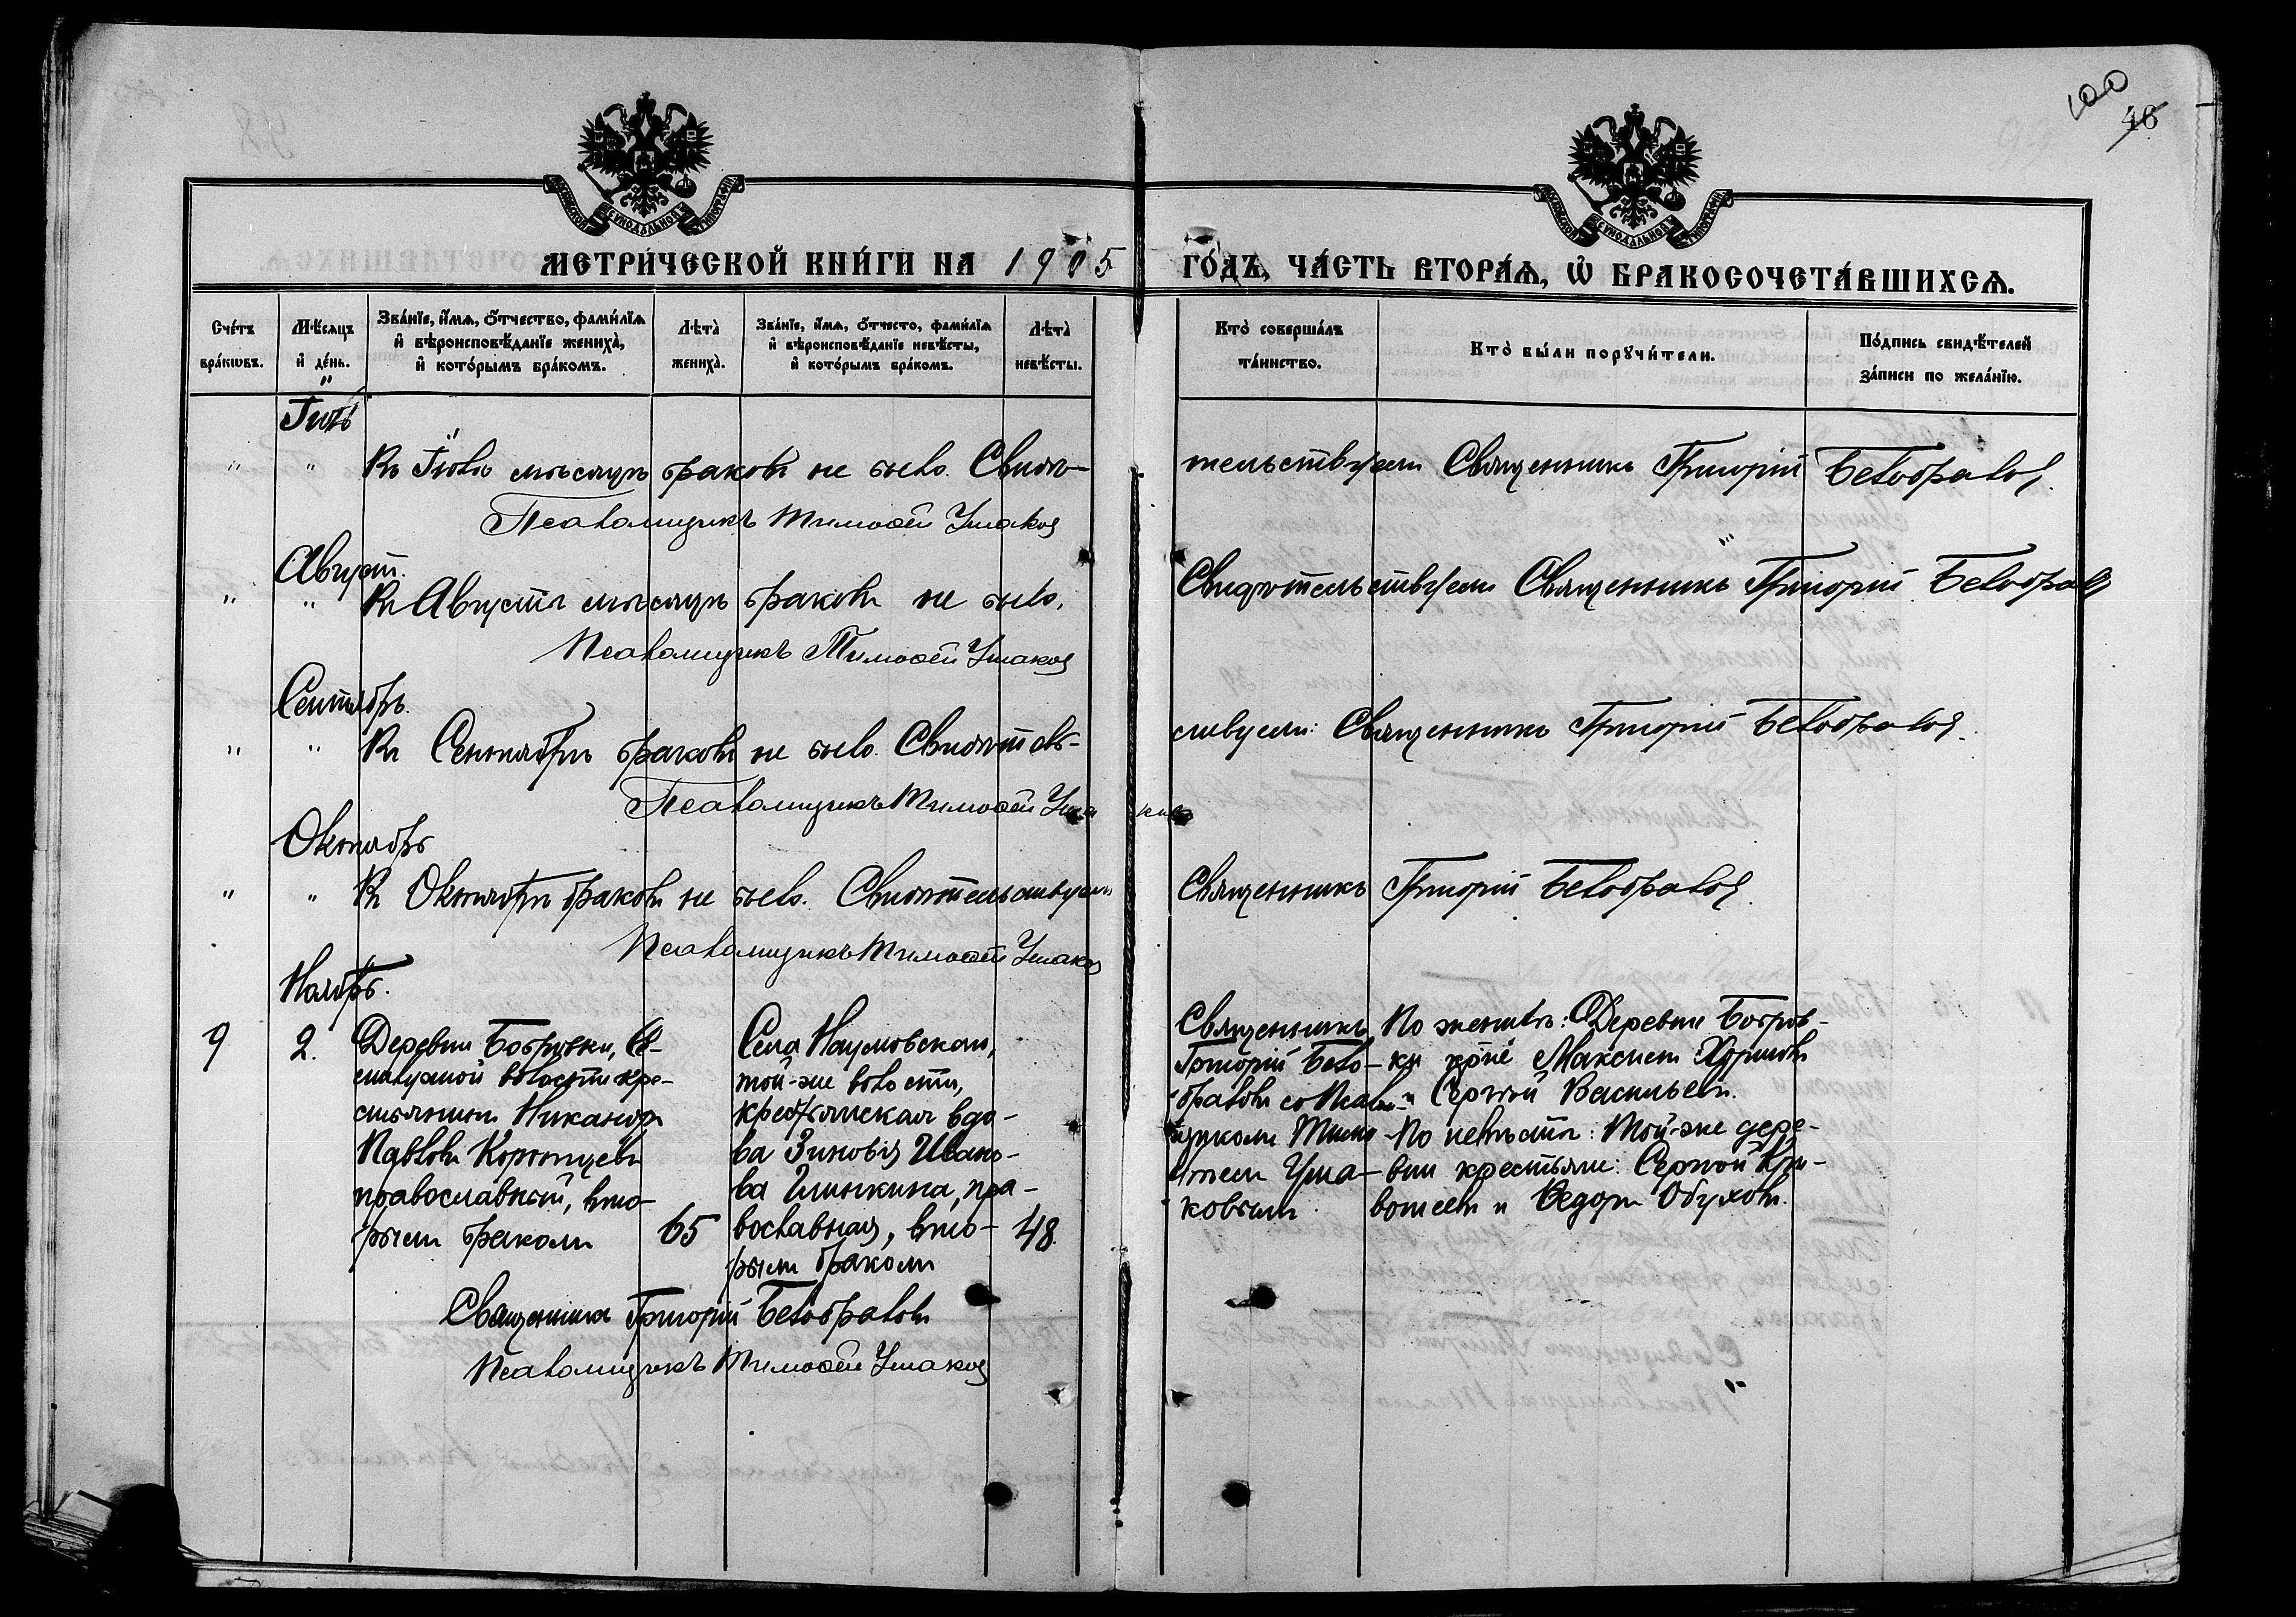 100
46
МОСКОВСКОЙ СУНОДАЛЬНОЙ ТИПОГРАФІИ
МОСКОВСКОЙ СУНОДАЛЬНОЙ ТИПОГРАФІИ
МЕТРИ́ЧЕСКОЙ КНИ́ГИ НА 1905 ГО́ДЪ, ЧА́СТЬ ВТОРА́Ѧ, Ѡ҆ БРАКОСОЧЕТА́ВШИХСѦ.
Сче́тъ бра́кωвъ.
Мѣ́сяцъ и҆ де́нь.
Зва́нїе, и҆́мѧ, ѻ҆́тчество, фами́лїѧ и҆ вѣроисповѣ́данїе жениха̀, и҆ кото́рымъ бра́комъ.
Лѣта̀ жениха̀.
Зва́нїе, и҆́мѧ, ѻ҆́тчесто, фами́лїѧ и҆ вѣроисповѣ́данїе невѣ́сты, и҆ кото́рымъ бра́комъ.
Лѣта̀ невѣ́сты.
Кто̀ соверша́лъ та́инство.
Кто̀ бы́ли порꙋчи́тели.
По́дпись свидѣ́телей за́писи по жела́нїю.
Іюль
" " Въ Іюлѣ мѣсяцѣ браковъ не было. Свидѣтельствуемъ Священникъ Григорій Белобраговъ
Псаломщикъ Тимофей Ушаковъ
Августъ.
" " Въ Августѣ мѣсяцѣ браковъ не было. Свидѣтельствуемъ Священникъ Григорій
Псаломщикъ Тимофей Ушаковъ
Сентябрь.
" " Въ Сентябрѣ браковъ не было. Свидѣтельствуемъ: Священникъ Григорій
Псаломщикъ Тимофей Ушаковъ
Октябрь
" " Въ Октябрѣ браковъ не было. Свидѣтельствуемъ Священникъ Григорій
Псаломщикъ Тимофей Ушаковъ
Ноябрь.
9
2.
Деревни Бобровки,
волости кре-
стьянинъ Никаноръ
Павловъ
православный, вто-
рымъ бракомъ
65
Села Наумовскаго,
той-же волости,
крестьянская вдо-
ва Зиновія Ивано-
ва Глинкина, пра-
вославная, вто-
рымъ бракомъ
48.
Священникъ
Григорій Бело-
со Псалом-
щикомъ Тимо-
феемъ Уша-
ковымъ
По женихѣ: Деревни Бобров-
ки Максимъ
и Сергѣй Васильевъ.
По невѣстѣ: Той-же дере-
вни крестьяне: Сергѣй Кри-
вошеевъ и Ѳедоръ Обуховъ.
Священникъ Григорій
Псаломщикъ Тимофей Ушаковъ